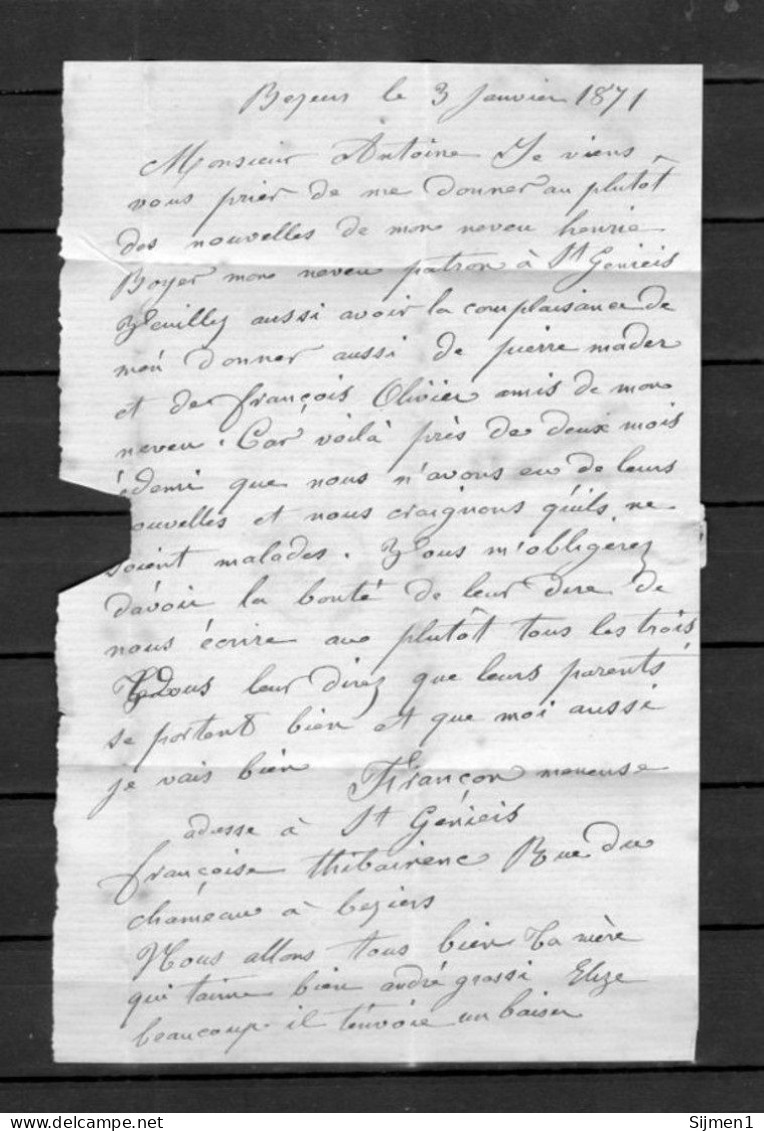 le 3 Janvier 1871
Monsieur Antoine Je viens
vous prier de me donner au plutôt
des nouvelles de mon neveu henrie
Boyer mon neveu patron à St Genieis
Veuillez aussi avoir la complaisance de
m'en donner aussi de pierre mader
et de françois Olivier amis de mon
neveu. Car voilà près de deux mois
édemi que nous n'avons eu de leurs
ouvelles et nous craignons qu'ils ne
soient malades. Vous m'obligerez
d'avoir la bonté de leur dire de
nous écrire au plutôt tous les trois
Vous leur direz que leurs parents
se portent bien et que moi aussi
je vais bien Françon meneuse
adesse à St Génieis
françoise thibairenc Rue du
chameau à beziers
Nous allons tous bien ta mère
qui t'aime bien andré grossi Elize
beaucoup il t'envoie un baiser
Sijmen1